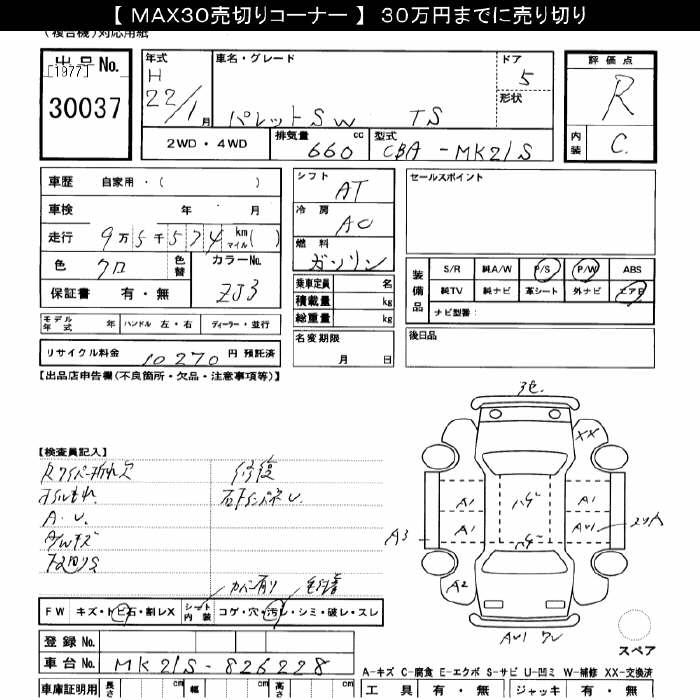 【 MAX30売切りコーナー 】 30万円までに売り切り
(複合機)対応用紙
出品No. [1977] 30037
年式 H 22/1月
車名・グレード パレットSW TS
ドア 5
形状
評価点 R
内装 C.
2WD・4WD 排気量 660 cc 型式 CBA-MK21S
車歴 自家用・( )
車検 年 月
走行 9万5千574 km マイル( )
色 クロ 色替 カラーNo. ZJ3
保証書 有・無
シフト AT
冷房 AC
燃料 ガソリン
乗車定員 名
積載量 kg
総重量 kg
セールスポイント
装備品 S/R 純A/W P/S P/W ABS
純TV 純ナビ 革シート 外ナビ エアB
ナビ型番:
モデル年式 年 ハンドル 左・右 ディーラー・並行
名変期限 月 日
後日品
リサイクル料金 10270 円 預託済
【出品店申告欄(不良箇所・欠品・注意事項等)】
3色
XX
A1 ハゲ A1
A1 ハゲ AU1
A3
A2
AU1 ワレ
【検査員記入】
Rワイパー折れ欠 修復
オイルもれ 右Fインパネ U.
A・U.
A/Wキズ
FW キズ・トビ石・割レX シート内装 コゲ・穴・汚レ・シミ・破レ・スレ
スペア
登録No.
車台No. MK21S-826228
A-キズ C-腐食 E-エクボ S-サビ U-凹ミ W-補修 XX-交換済
車庫証明用 長さ cm 幅 cm 高さ cm
工具 有・無 ジャッキ 有・無